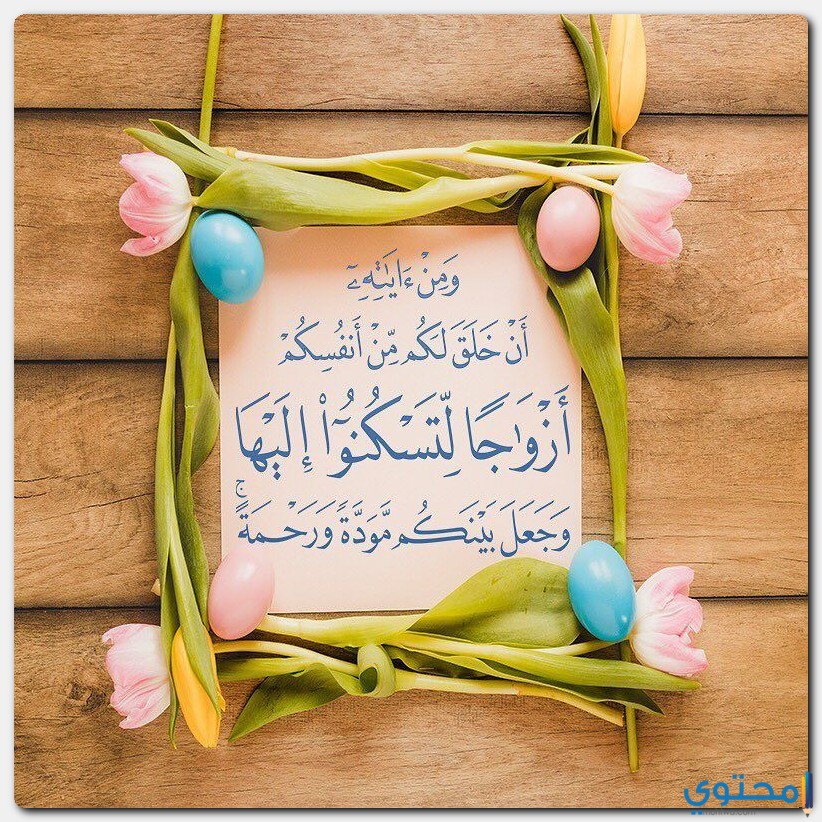 وَمِنْ ءَايَـٰتِهِۦٓ
أَنْ خَلَقَ لَكُم مِّنْ أَنفُسِكُمْ
أَزْوَٰجًا لِّتَسْكُنُوٓا۟ إِلَيْهَا
وَجَعَلَ بَيْنَكُم مَّوَدَّةً وَرَحْمَةً ۚ
محتوي